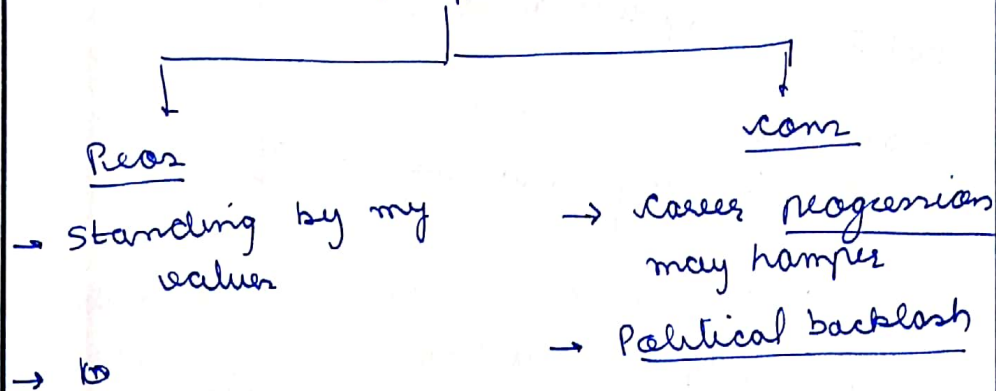 Pros
cons
→ Standing by my
values
→ career progression
may hamper
→ Political backlash
→